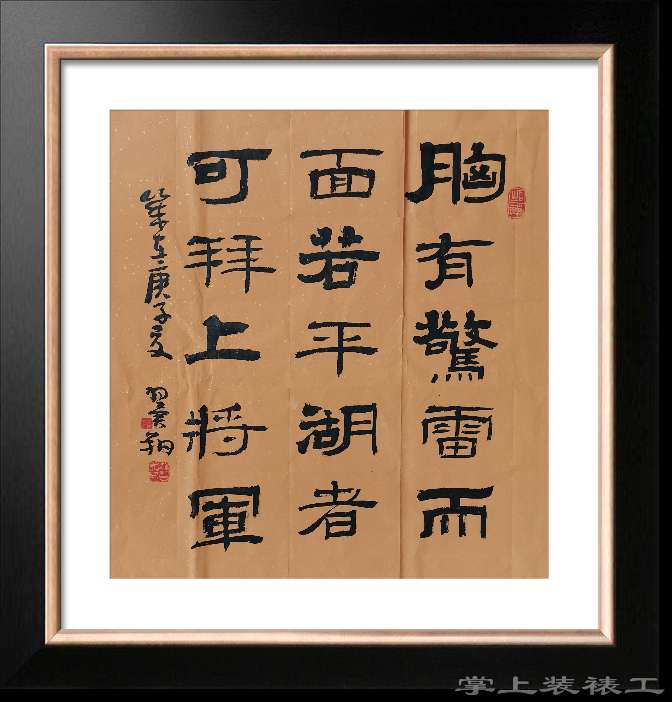 胸有驚雷而
面若平湖者
可拜上將軍
歲在庚子夏
掌上装裱工